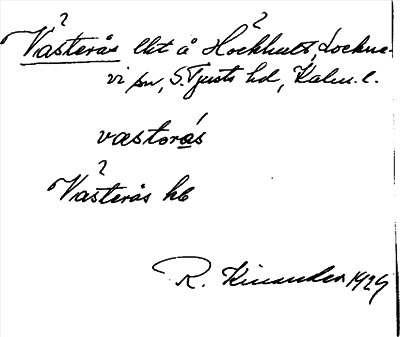 Västerås lht å Hockhult, Locknevi sn, S. Tjusts hd, Kalm. l.
västorás
Västerås hb
R. Kinander 1929